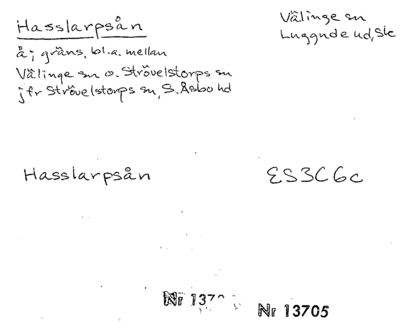 Hasslarpsån
Välinge sn
Luggude hd, Sk
å; gräns, bl.a. mellan
Välinge sn o. Strövelstorps sn
jfr Strövelstorps sn, S. Åsbo hd
Hasslarpsån
ES3C6c
Nr 137
Nr 13705